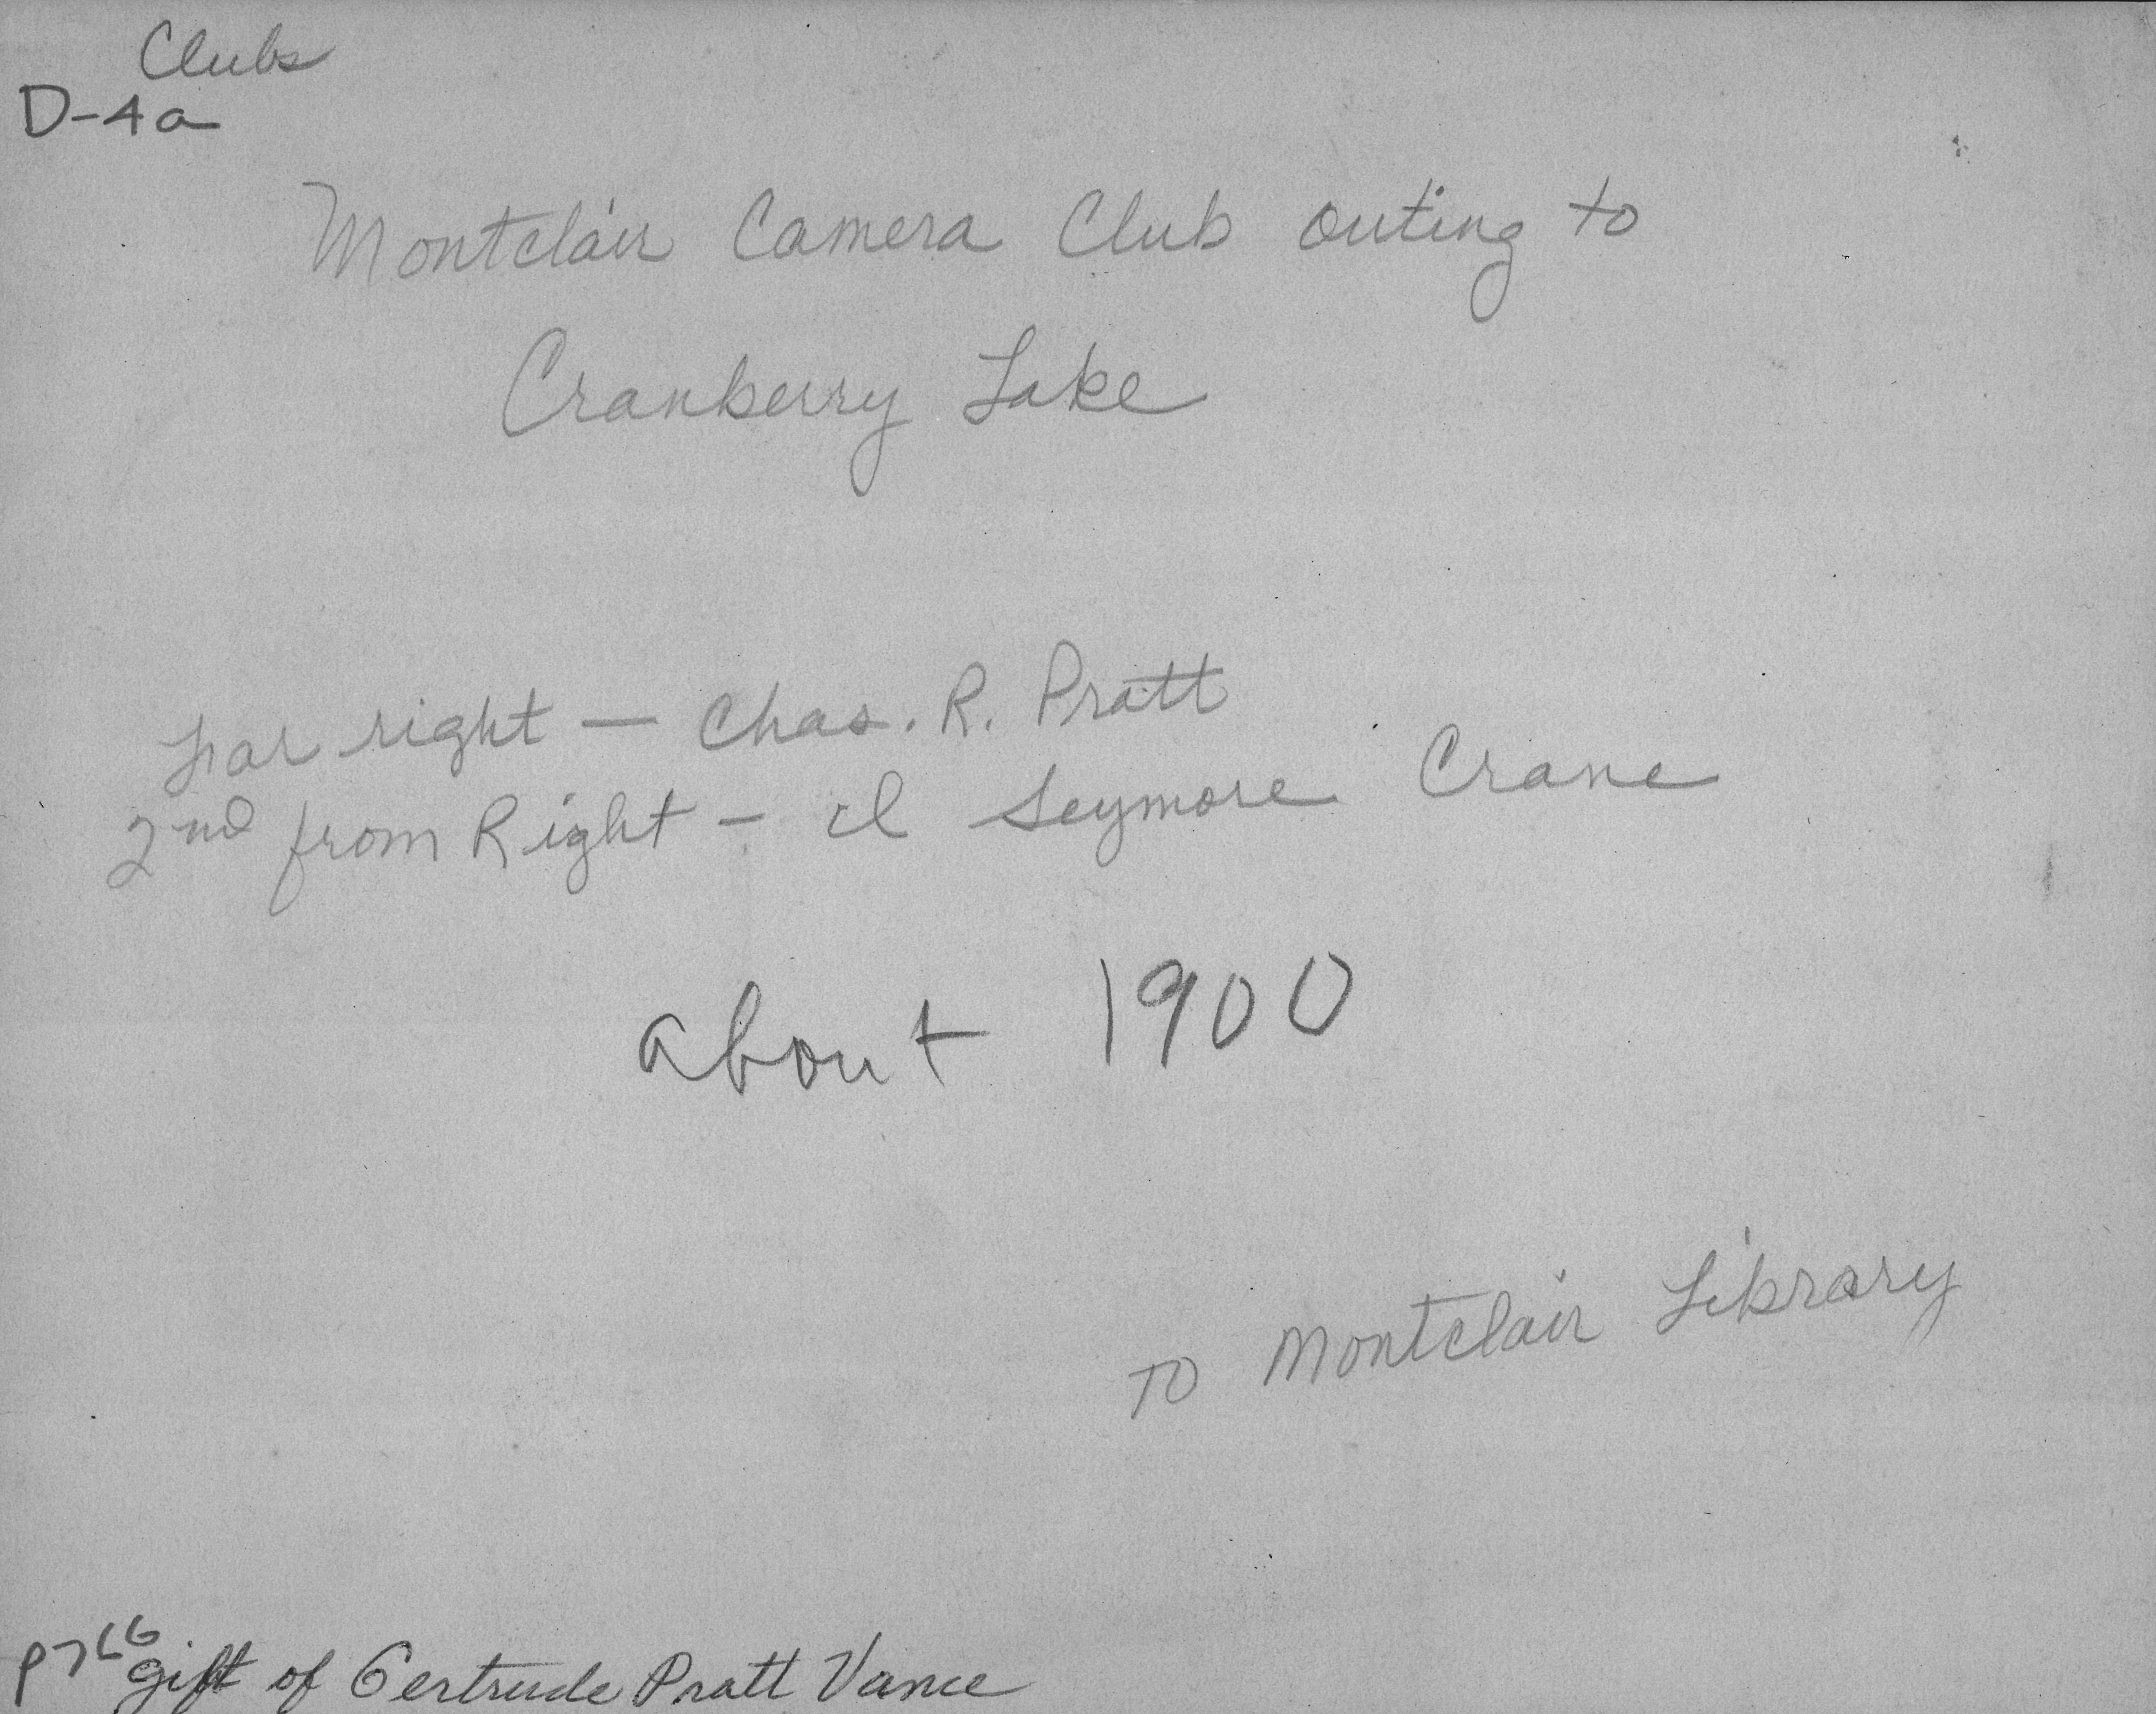 Clubs
D-4a
Montclair Camera Club outing to
Cranberry Lake
Far right — Chas. R. Pratt
2nd from Right - I Seymore Crane
about 1900
To Montclair Library
P766
gift of Gertrude Pratt Vance